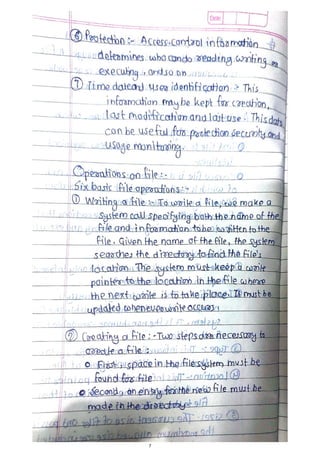 Date
⑥ Protection :- Access-control information
determines who can do reading, writing,
executing, and so on
⑦ Time date and user identification :- This
information may be kept for creation,
last modification and last use. This data
can be useful for protection security and
usage monitoring.
Operations on file :-
Six basic file operations :-
① Writing a file :- To write a file, we make a
system call specifying both the name of the
file and information to be written to the
file. Given the name of the file, the system
searches the directory to find the file's
location. The system must keep a write
pointer to the location in the file where
the next write is to take place. It must be
updated whenever write occurs.
② Creating a file :- Two steps are necessary to
create a file :
First, space in the file system must be
found for file
Second, an entry for the new file must be
made in the directory